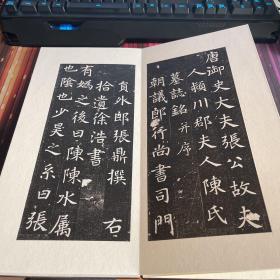 唐御史大夫張公故夫
人潁川郡夫人陳氏
墓誌銘并序
朝議郎行尚書司門
員外郎張鼎撰　右
拾遺徐浩書
有媯之後曰陳陳水属
也陰也少昊之系曰張